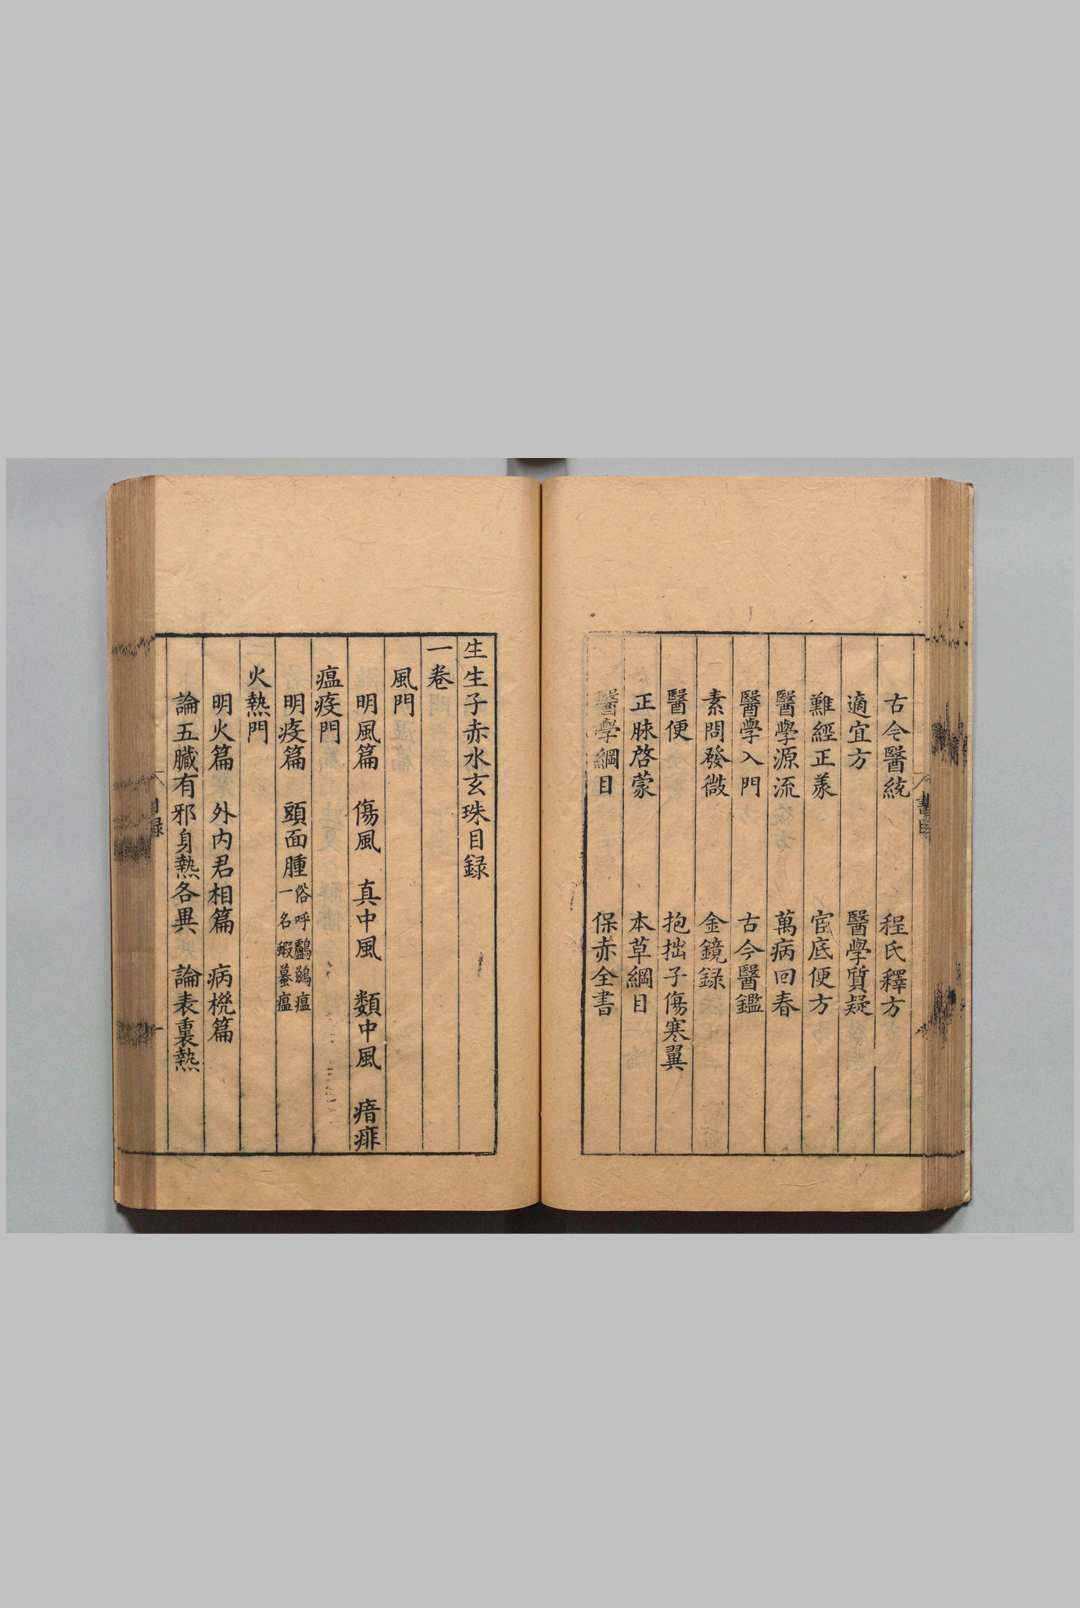 古今醫統　程氏釋方
適宜方　醫學質疑
難經正義　官底便方
醫學源流　萬病回春
醫學入門　古今醫鑑
素問發微　金鏡録
醫便　抱拙子傷寒翼
正脉啓蒙　本草綱目
醫學綱目　保赤全書
生生子赤水玄珠目録
一卷
風門
明風篇　傷風　真中風　類中風　瘖痱
瘟疫門
明疫篇　頭面腫俗呼鸕鷀瘟
一名蝦蟇瘟
火熱門
明火篇　外内君相篇　病機篇
論五臟有邪身熱各異　論表裏熱